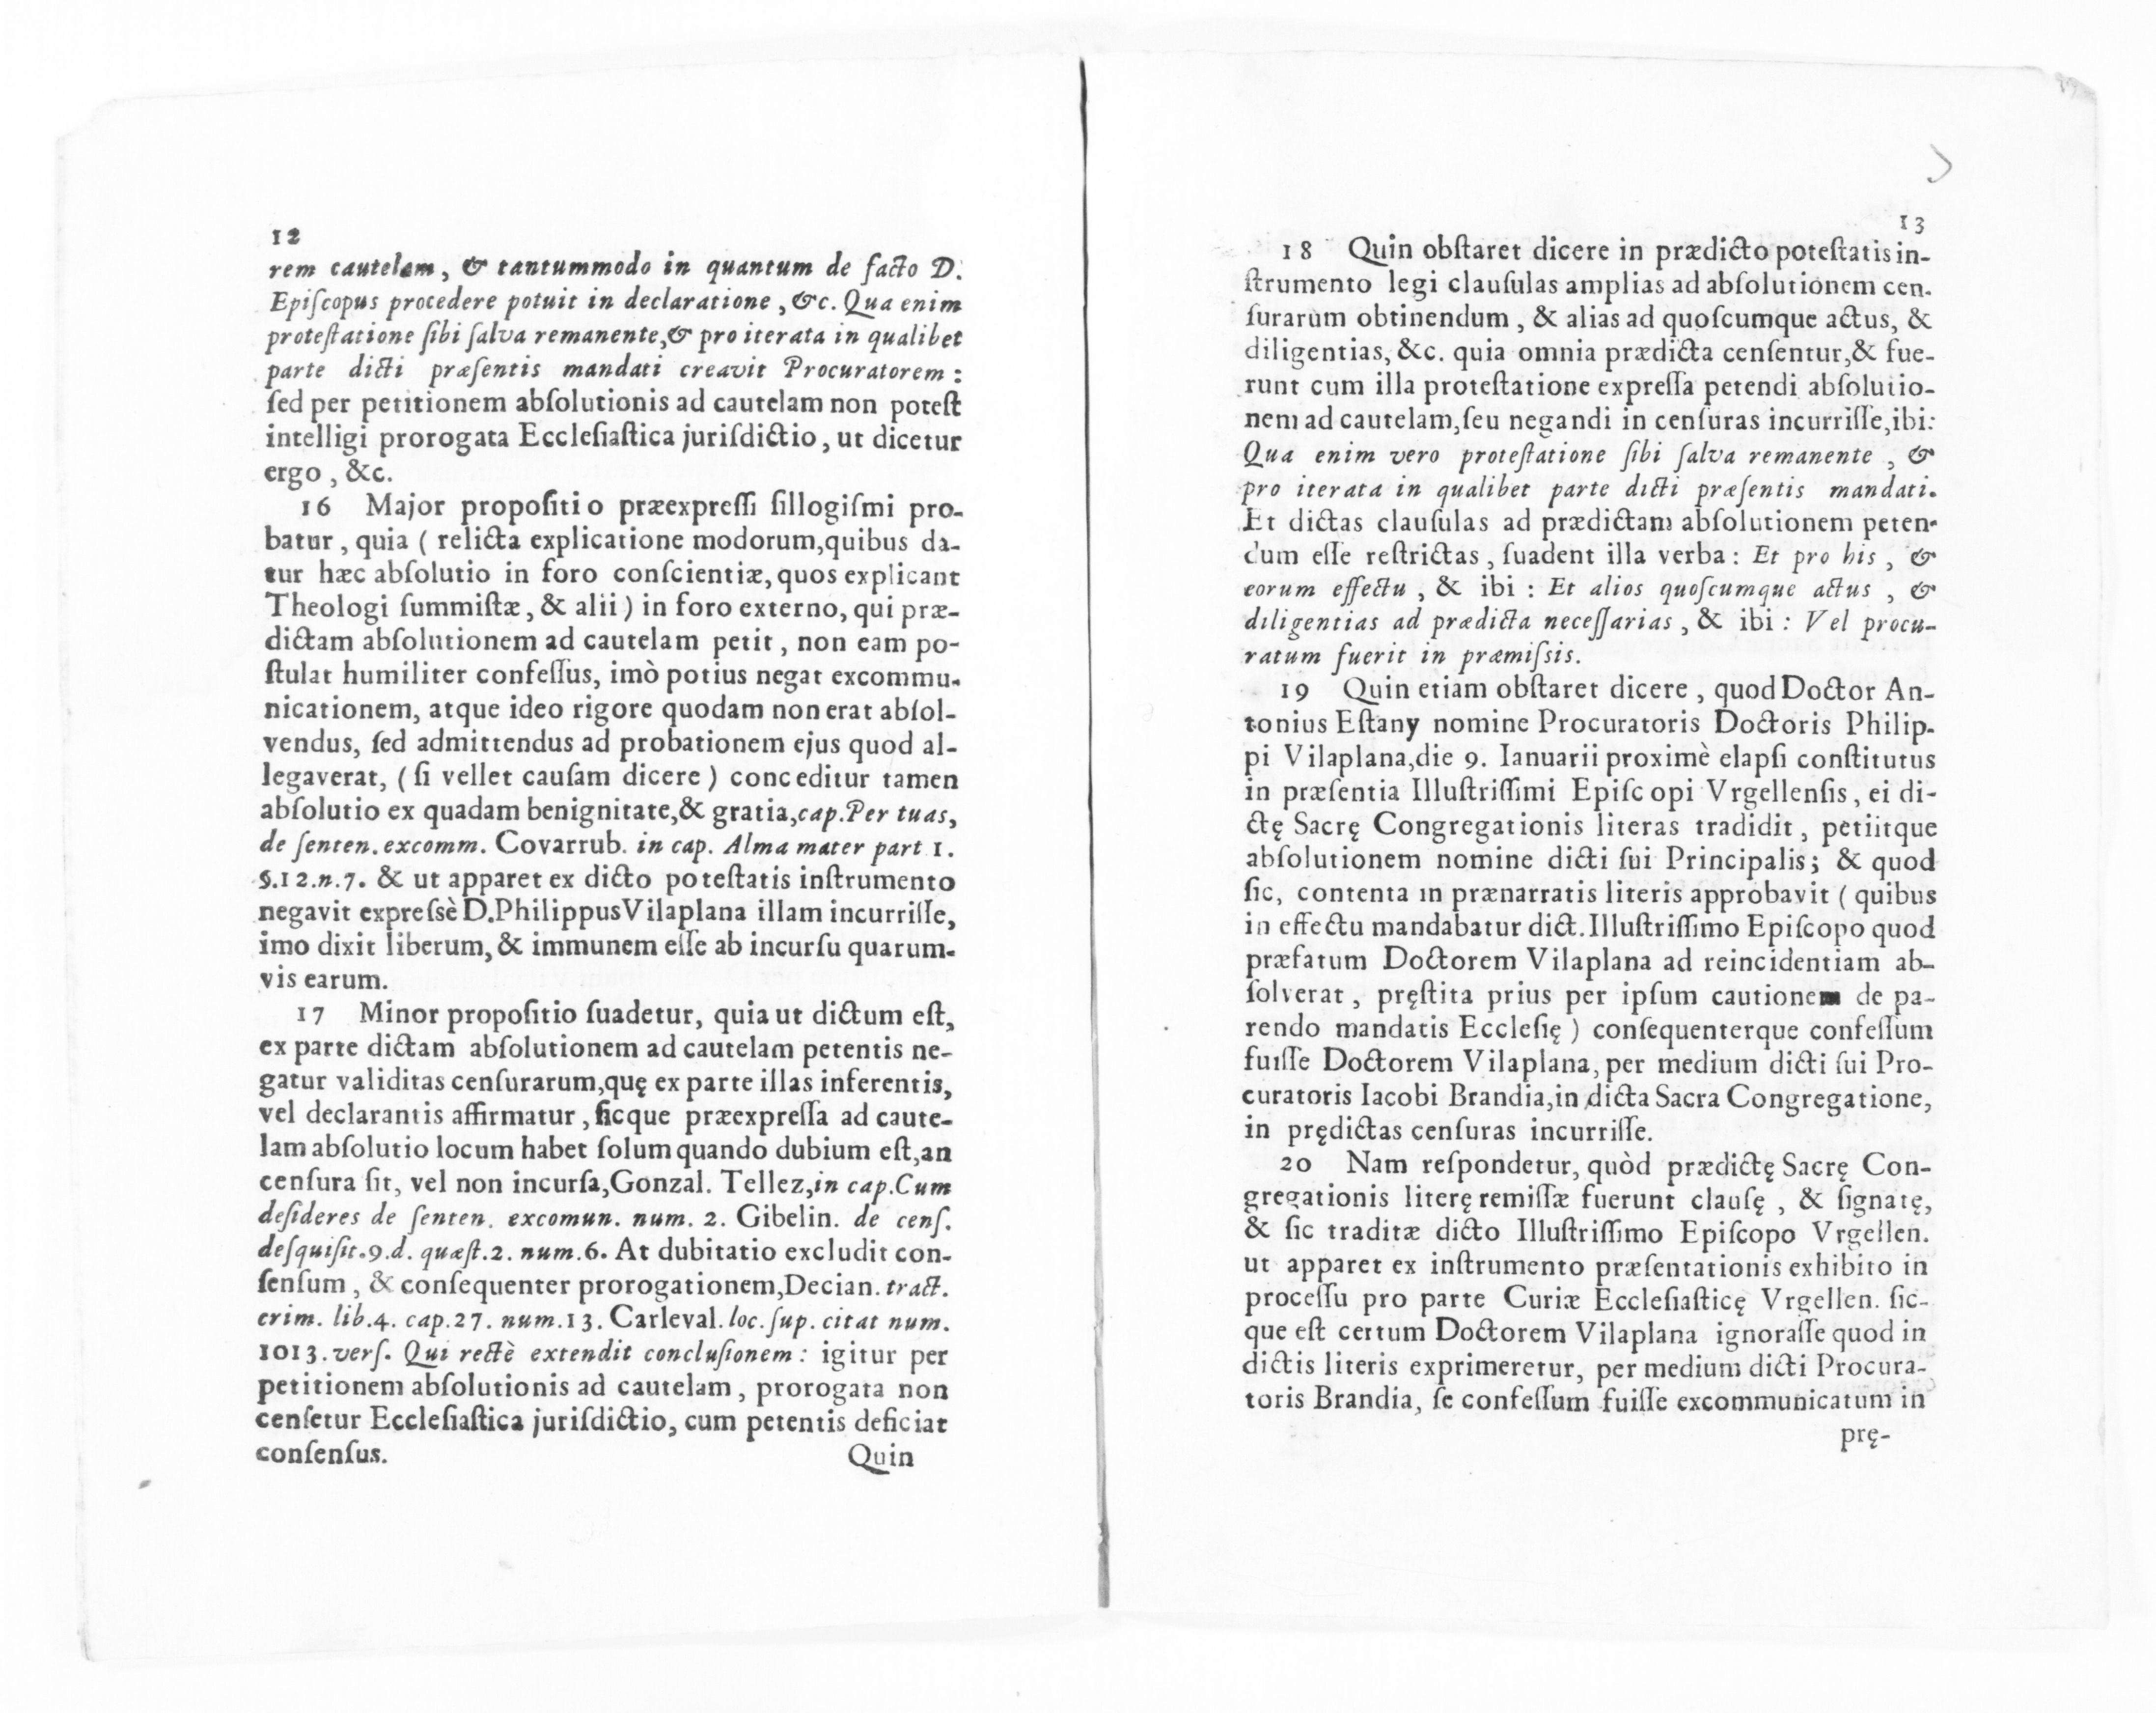 12
rem cautelam, & tantummodo in quantum de facto D.
Epiſcopus procedere potuit in declaratione, &c. Qua enim
proteſtatione ſibi ſalva remanente, & pro iterata in qualibet
parte dicti præſentis mandati creavit Procuratorem:
ſed per petitionem abſolutionis ad cautelam non poteſt
intelligi prorogata Eccleſiaſtica juriſdictio, ut dicetur
ergo, &c.
16 Major propoſitio præexpreſſi ſillogiſmi pro-
batur, quia ( relicta explicatione modorum, quibus da-
tur hæc abſolutio in foro conſcientiæ, quos explicant
Theologi ſummiſtæ, & alii ) in foro externo, qui præ-
dictam abſolutionem ad cautelam petit, non eam po-
ſtulat humiliter confeſſus, imò potius negat excommu-
nicationem, atque ideo rigore quodam non erat abſol-
vendus, ſed admittendus ad probationem ejus quod al-
legaverat, ( ſi vellet cauſam dicere ) conceditur tamen
abſolutio ex quadam benignitate, & gratia, cap. Per tuas,
de ſenten. excomm. Covarrub. in cap. Alma mater part 1.
§.12.n.7. & ut apparet ex dicto poteſtatis inſtrumento
negavit expreſsè D. Philippus Vilaplana illam incurriſſe,
imo dixit liberum, & immunem eſſe ab incurſu quarum-
vis earum.
17 Minor propoſitio ſuadetur, quia ut dictum eſt,
ex parte dictam abſolutionem ad cautelam petentis ne-
gatur validitas cenſurarum, quę ex parte illas inferentis,
vel declarantis affirmatur, ſicque præexpreſſa ad caute-
lam abſolutio locum habet ſolum quando dubium eſt, an
cenſura ſit, vel non incurſa, Gonzal. Tellez, in cap. Cum
deſideres de ſenten. excomun. num. 2. Gibelin. de cenſ.
deſquiſit.9.d. quæſt.2. num.6. At dubitatio excludit con-
ſenſum, & conſequenter prorogationem, Decian. tract.
crim. lib.4. cap.27. num.13. Carleval. loc. ſup. citat num.
1013. verſ. Qui rectè extendit concluſionem: igitur per
petitionem abſolutionis ad cautelam, prorogata non
cenſetur Eccleſiaſtica juriſdictio, cum petentis deficiat
conſenſus.
Quin
13
18 Quin obſtaret dicere in prædicto poteſtatis in-
ſtrumento legi clauſulas amplias ad abſolutionem cen-
ſurarum obtinendum, & alias ad quoſcumque actus, &
diligentias, &c. quia omnia prædicta cenſentur, & fue-
runt cum illa proteſtatione expreſſa petendi abſolutio-
nem ad cautelam, ſeu negandi in cenſuras incurriſſe, ibi:
Qua enim vero proteſtatione ſibi ſalva remanente, &
pro iterata in qualibet parte dicti præſentis mandati.
Et dictas clauſulas ad prædictam abſolutionem peten-
dum eſſe reſtrictas, ſuadent illa verba: Et pro his, &
eorum effectu, & ibi: Et alios quoſcumque actus, &
diligentias ad prædicta neceſſarias, & ibi: Vel procu-
ratum fuerit in præmiſsis.
19 Quin etiam obſtaret dicere, quod Doctor An-
tonius Eſtany nomine Procuratoris Doctoris Philip-
pi Vilaplana, die 9. Ianuarii proximè elapſi conſtitutus
in præſentia Illuſtriſſimi Epiſcopi Vrgellenſis, ei di-
ctę Sacrę Congregationis literas tradidit, petiitque
abſolutionem nomine dicti ſui Principalis; & quod
ſic, contenta in prænarratis literis approbavit ( quibus
in effectu mandabatur dict. Illuſtriſſimo Epiſcopo quod
præfatum Doctorem Vilaplana ad reincidentiam ab-
ſolverat, pręſtita prius per ipſum cautionem de pa-
rendo mandatis Eccleſię ) conſequenterque confeſſum
fuiſſe Doctorem Vilaplana, per medium dicti ſui Pro-
curatoris Iacobi Brandia, in dicta Sacra Congregatione,
in prędictas cenſuras incurriſſe.
20 Nam reſpondetur, quòd prædictę Sacrę Con-
gregationis literę remiſſæ fuerunt clauſę, & ſignatę,
& ſic traditæ dicto Illuſtriſſimo Epiſcopo Vrgellen.
ut apparet ex inſtrumento præſentationis exhibito in
proceſſu pro parte Curiæ Eccleſiaſticę Vrgellen. ſic-
que eſt certum Doctorem Vilaplana ignoraſſe quod in
dictis literis exprimeretur, per medium dicti Procura-
toris Brandia, ſe confeſſum fuiſſe excommunicatum in
prę-